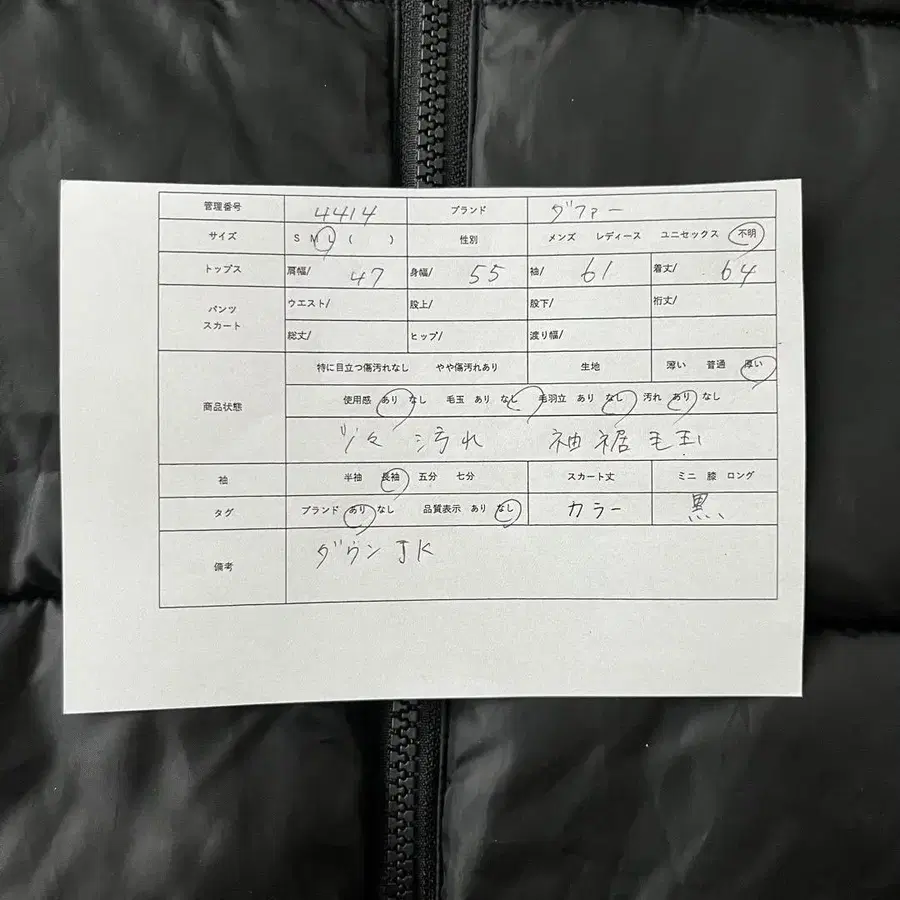 管理番号 4414 ブランド ダファー
サイズ S M L ( ) 性別 メンズ レディース ユニセックス 不明
トップス 肩幅/ 47 身幅/ 55 袖/ 61 着丈/ 64
パンツ スカート ウエスト/ 股上/ 股下/ 裄丈/
総丈/ ヒップ/ 渡り幅/
特に目立つ傷汚れなし やや傷汚れあり 生地 薄い 普通 厚い
商品状態 使用感 あり なし 毛玉 あり なし 毛羽立 あり なし 汚れ あり なし
少々 汚れ 袖裾毛玉
袖 半袖 長袖 五分 七分 スカート丈 ミニ 膝 ロング
タグ ブランド あり なし 品質表示 あり なし カラー 黒、
備考 ダウンJK